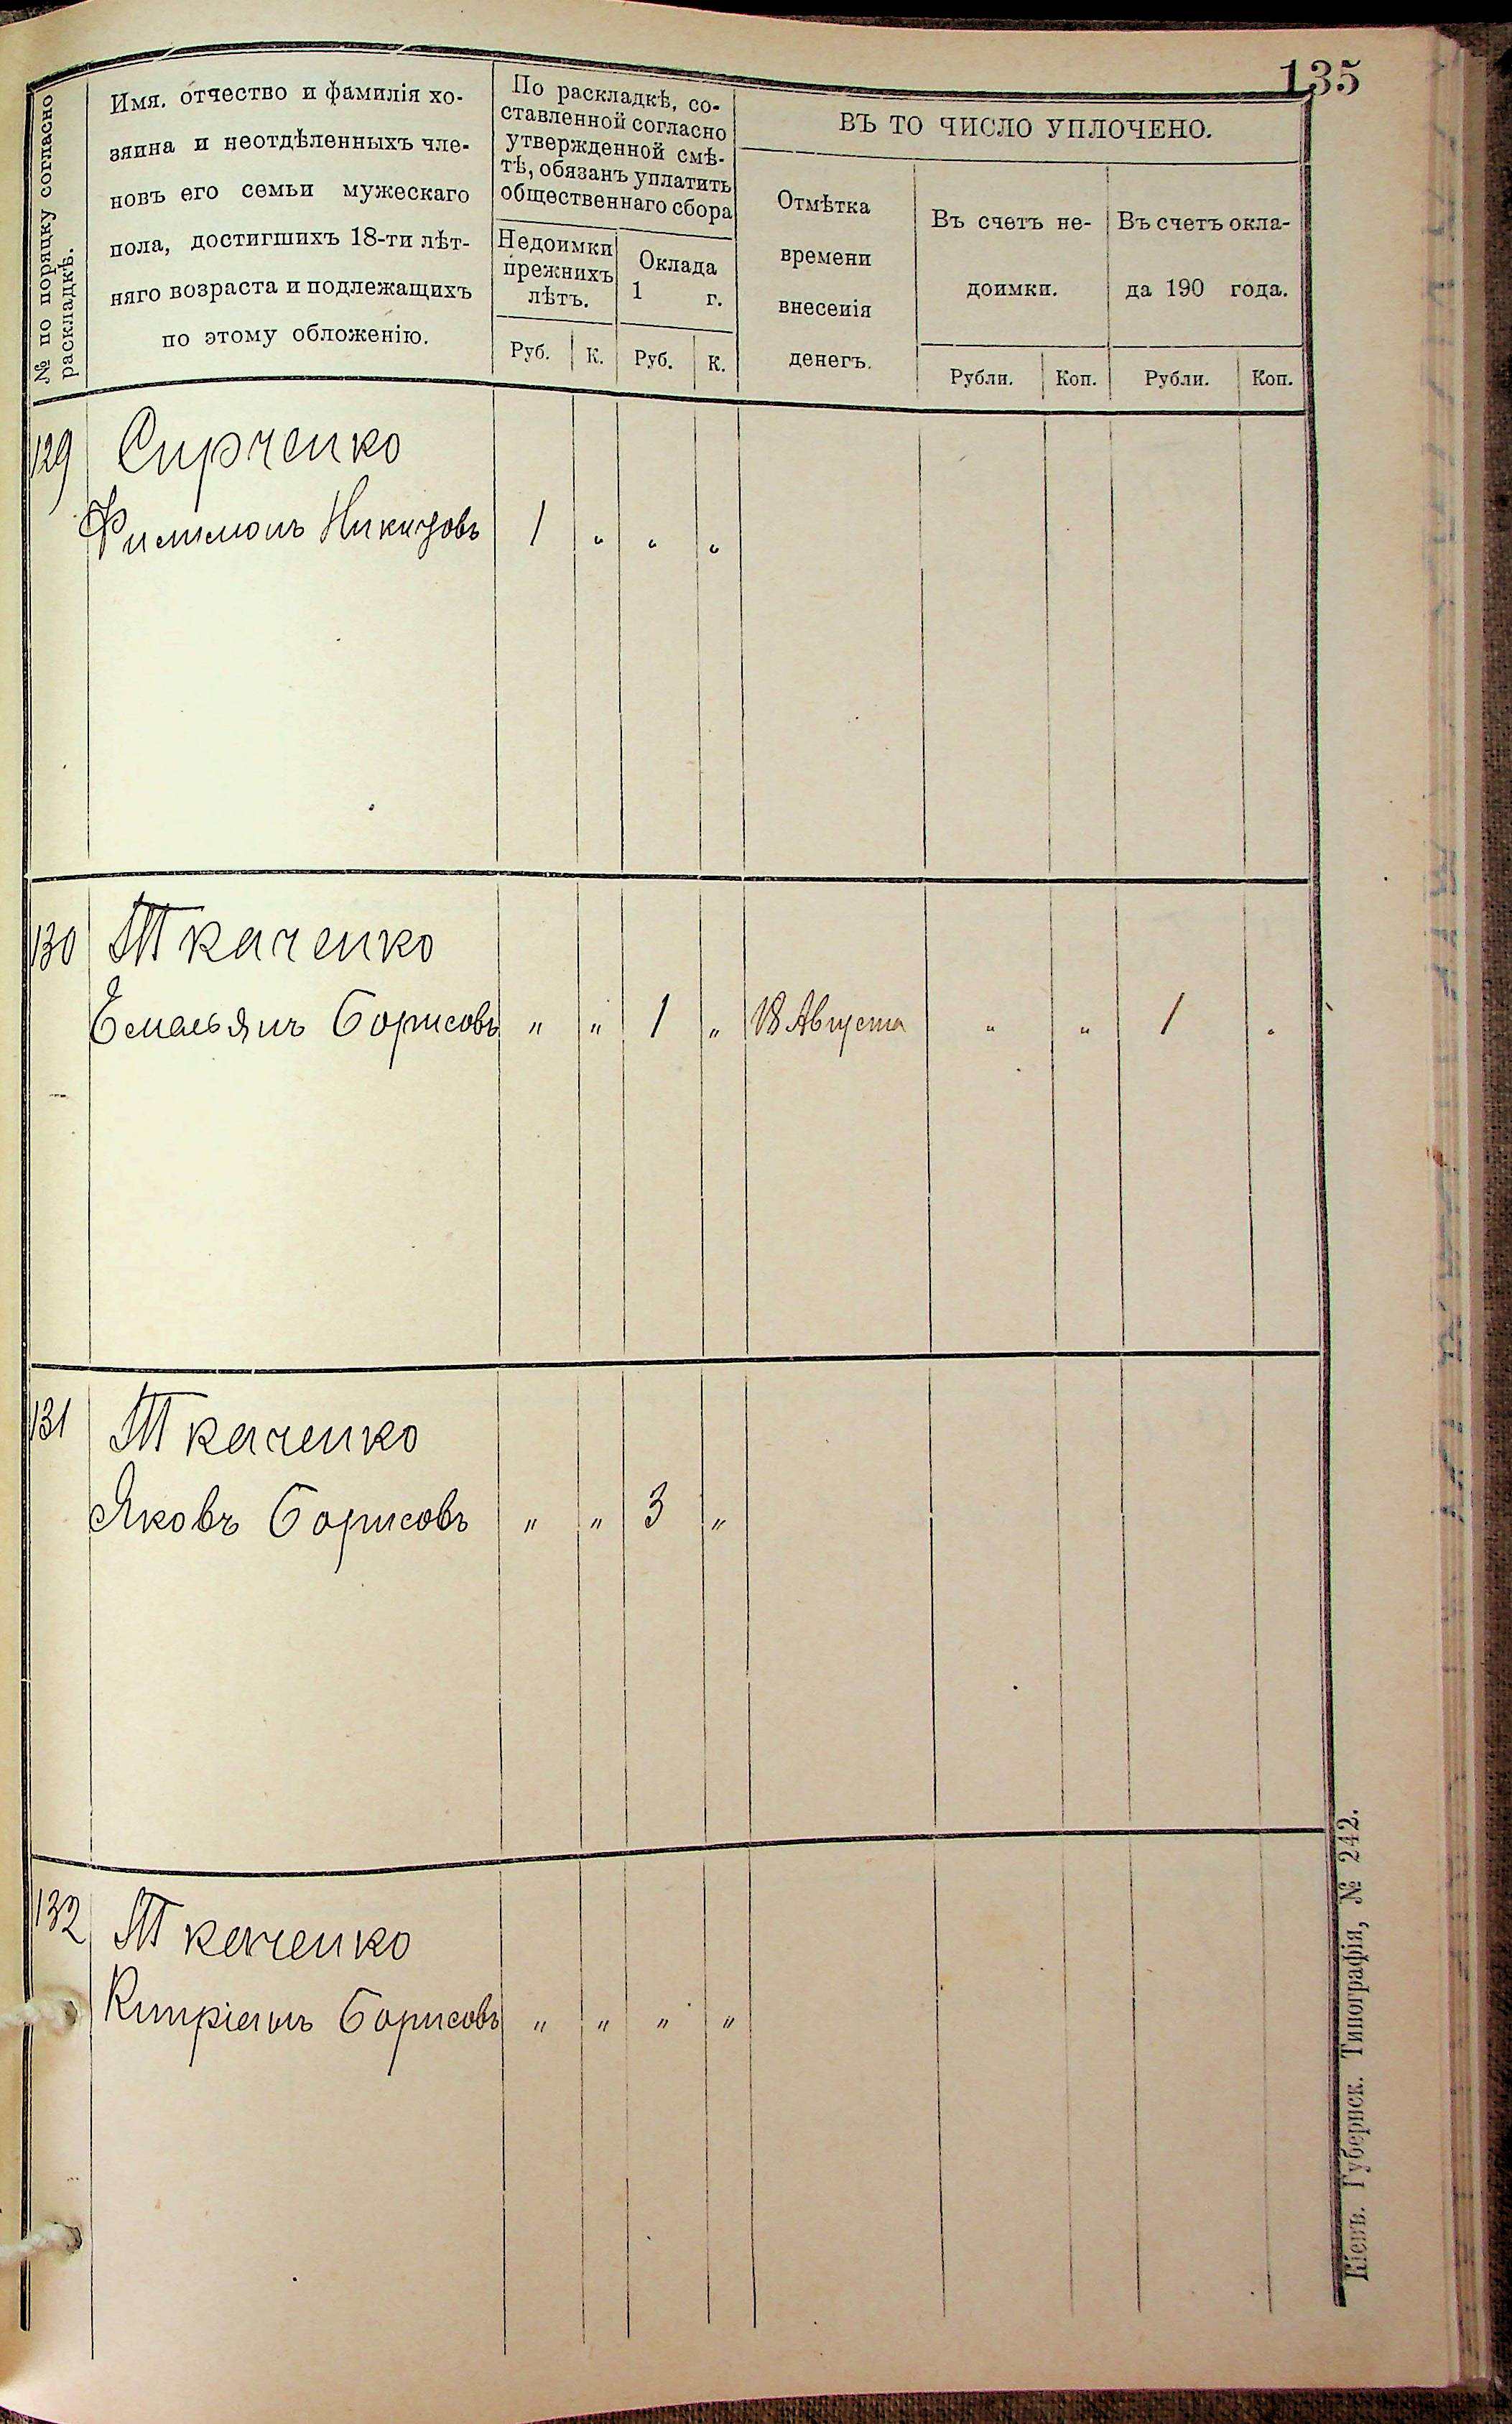 135
№ по порядку согласно
раскладкѣ.
Имя, отчество и фамилія хо-
зяина и неотдѣленныхъ чле-
новъ его семьи мужескаго
пола, достигшихъ 18-ти лѣт-
няго возраста и подлежащихъ
по этому обложенію.
По раскладкѣ, со-
ставленной согласно
утвержденной смѣ-
тѣ, обязанъ уплатить
общественнаго сбора
Недоимки
прежнихъ
лѣтъ.
Оклада
1 г.
Руб. К. Руб. К.
ВЪ ТО ЧИСЛО УПЛОЧЕНО.
Отмѣтка
времени
внесенія
денегъ.
Въ счетъ не-
доимки.
Въ счетъ окла-
да 190 года.
Рубли. Коп. Рубли. Коп.
129 Сирченко
Филимонъ Никитовъ 1 „ „ „
130 Ткаченко
Емельянъ Борисовъ „ „ 1 „ 18 Августа „ „ 1 „
131 Ткаченко
Яковъ Борисовъ „ „ 3 „
132 Ткаченко
Кипріанъ Борисовъ „ „ „ „
Кіевъ. Губернск. Типографія, № 242.